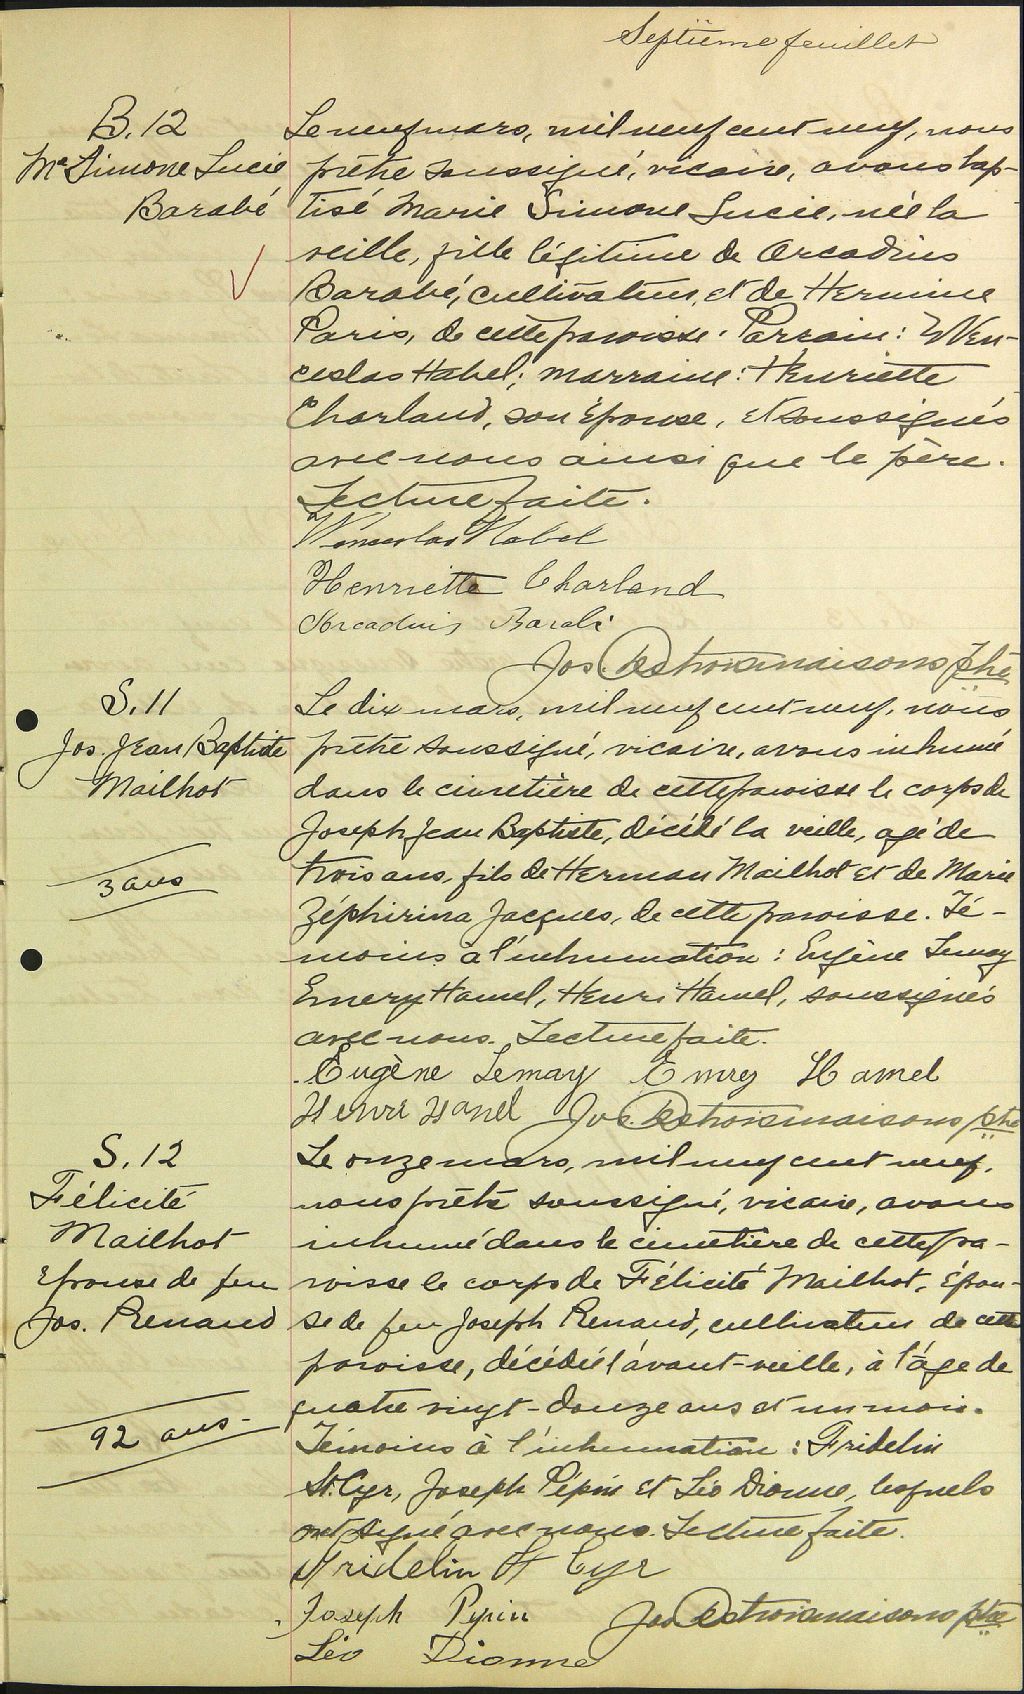 Septième feuillet
B. 12
Mie Simone Lucie
Barabé
Le neuf mars, mil neuf cent neuf, nous
prêtre soussigné, vicaire, avons bap-
tisé Marie Simone Lucie, née la
veille, fille légitime de Arcadius
Barabé, cultivateur, et de Hermine
Paris, de cette paroisse. Parrain: Wen-
ceslas Habel; marraine: Henriette
Charland, son épouse, et soussignés
avec nous ainsi que le père.
Lecture faite.
Wenceslas Habel
Henriette Charland
Arcadius Barabé
Jos. Destroismaisons ptre
S. 11
Jos. Jean Baptiste
Mailhot
3 ans
Le dix mars, mil neuf cent neuf, nous
prêtre soussigné, vicaire, avons inhumé
dans le cimetière de cette paroisse le corps de
Joseph Jean Baptiste, décédé la veille, agé de
trois ans, fils de Herman Mailhot et de Marie
Zéphirina Jacques, de cette paroisse. Té-
moins à l'inhumation: Eugène Lemay
Emery Hamel, Henri Hamel, soussignés
avec nous. Lecture faite.
Eugène Lemay Emrey Hamel
Henri Hamel Jos. Destroismaisons ptre
S. 12
Félicité
Mailhot
Epouse de feu
Jos. Renaud
92 ans
Le onze mars, mil neuf cent neuf,
nous prêtre soussigné, vicaire, avons
inhumé dans le cimetière de cette pa-
roisse le corps de Félicité Mailhot, épou-
se de feu Joseph Renaud, cultivateur de cette
paroisse, décédée l'avant-veille, à l'âge de
quatre vingt-douze ans et un mois.
Témoins à l'inhumation: Fridelin
St. Cyr, Joseph Pépin et Léo Dionne, lesquels
ont signé avec nous. Lecture faite.
Fridelin St Cyr
Joseph Pepin Jos Destroismaisons ptre
Léo Dionne